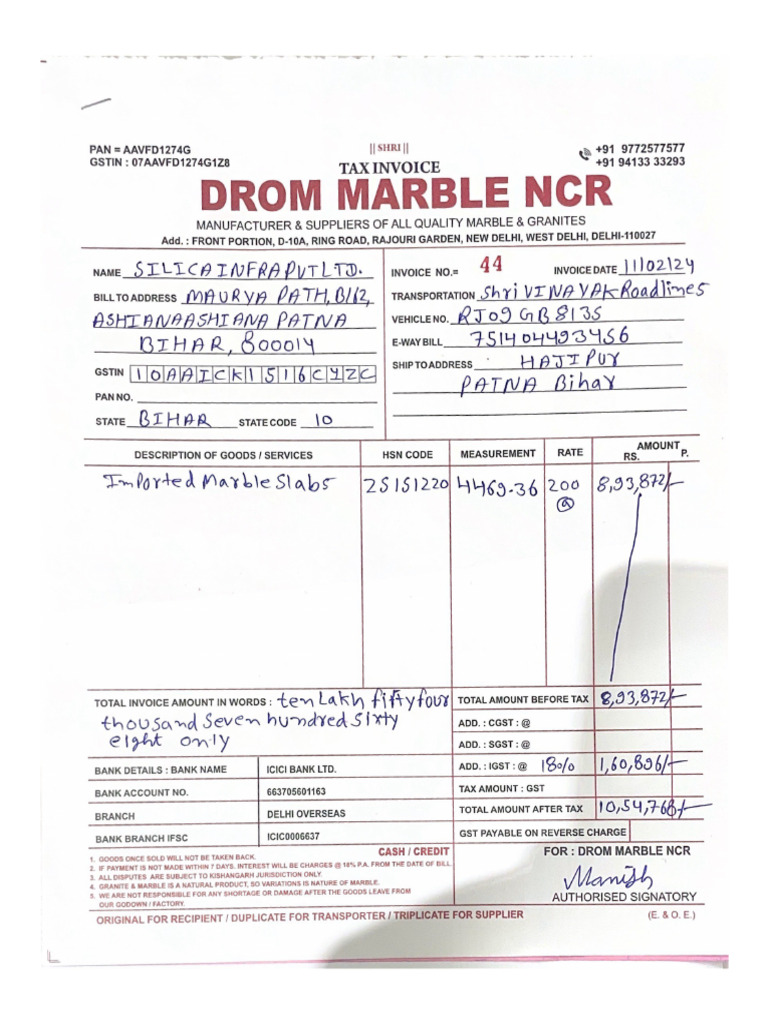 || SHRI ||
PAN = AAVFD1274G
GSTIN : 07AAVFD1274G1Z8
TAX INVOICE
+91 9772577577
+91 94133 33293
DROM MARBLE NCR
MANUFACTURER & SUPPLIERS OF ALL QUALITY MARBLE & GRANITES
Add. : FRONT PORTION, D-10A, RING ROAD, RAJOURI GARDEN, NEW DELHI, WEST DELHI, DELHI-110027
NAME SILICA INFRA PVT LTD.
BILL TO ADDRESS MAURYA PATH, B/162,
ASHIANAASHIANA PATNA
BIHAR, 800014
GSTIN 10AAICK1516C1ZC
PAN NO.
STATE BIHAR STATE CODE 10
INVOICE NO.= 44 INVOICE DATE 11/02/24
TRANSPORTATION Shri VINAYAK Roadlines
VEHICLE NO. RJ09GB8135
E-WAY BILL 751404493456
SHIP TO ADDRESS HAJIPUR
PATNA Bihar
DESCRIPTION OF GOODS / SERVICES HSN CODE MEASUREMENT RATE AMOUNT RS. P.
Imported Marble Slabs 25151220 4469-36 200 @ 8,93,872/-
TOTAL INVOICE AMOUNT IN WORDS : ten Lakh fifty four
thousand seven hundred sixty
eight only
TOTAL AMOUNT BEFORE TAX 8,93,872/-
ADD. : CGST : @
ADD. : SGST : @
ADD. : IGST : @ 18% 1,60,896/-
TAX AMOUNT : GST
TOTAL AMOUNT AFTER TAX 10,54,768/-
GST PAYABLE ON REVERSE CHARGE
BANK DETAILS : BANK NAME ICICI BANK LTD.
BANK ACCOUNT NO. 663705601163
BRANCH DELHI OVERSEAS
BANK BRANCH IFSC ICIC0006637
CASH / CREDIT
1. GOODS ONCE SOLD WILL NOT BE TAKEN BACK.
2. IF PAYMENT IS NOT MADE WITHIN 7 DAYS. INTEREST WILL BE CHARGES @ 18% P.A. FROM THE DATE OF BILL.
3. ALL DISPUTES ARE SUBJECT TO KISHANGARH JURISDICTION ONLY.
4. GRANITE & MARBLE IS A NATURAL PRODUCT, SO VARIATIONS IS NATURE OF MARBLE.
5. WE ARE NOT RESPONSIBLE FOR ANY SHORTAGE OR DAMAGE AFTER THE GOODS LEAVE FROM
OUR GODOWN / FACTORY.
FOR : DROM MARBLE NCR
Manish
AUTHORISED SIGNATORY
ORIGINAL FOR RECIPIENT / DUPLICATE FOR TRANSPORTER / TRIPLICATE FOR SUPPLIER
(E. & O. E.)